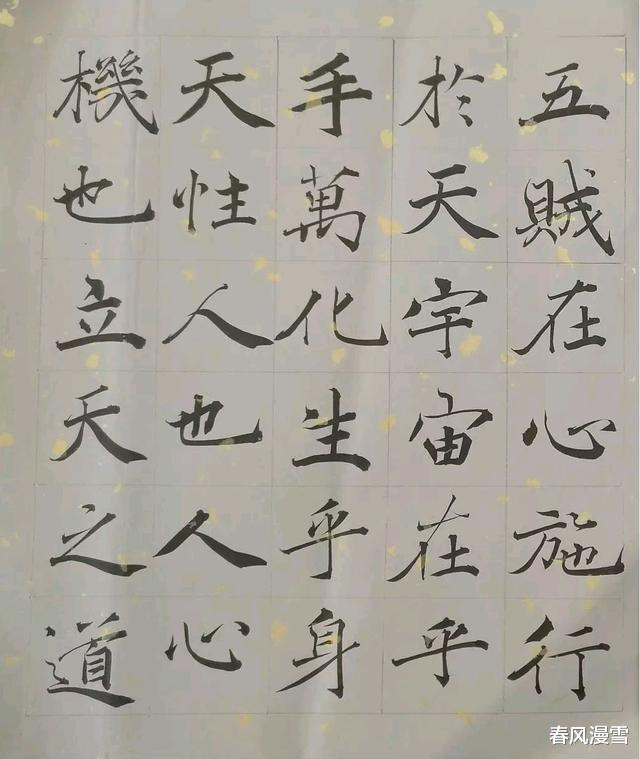 五賊在心施行
於天宇宙在乎
手萬化生乎身
天性人也人心
機也立天之道
春风漫雪